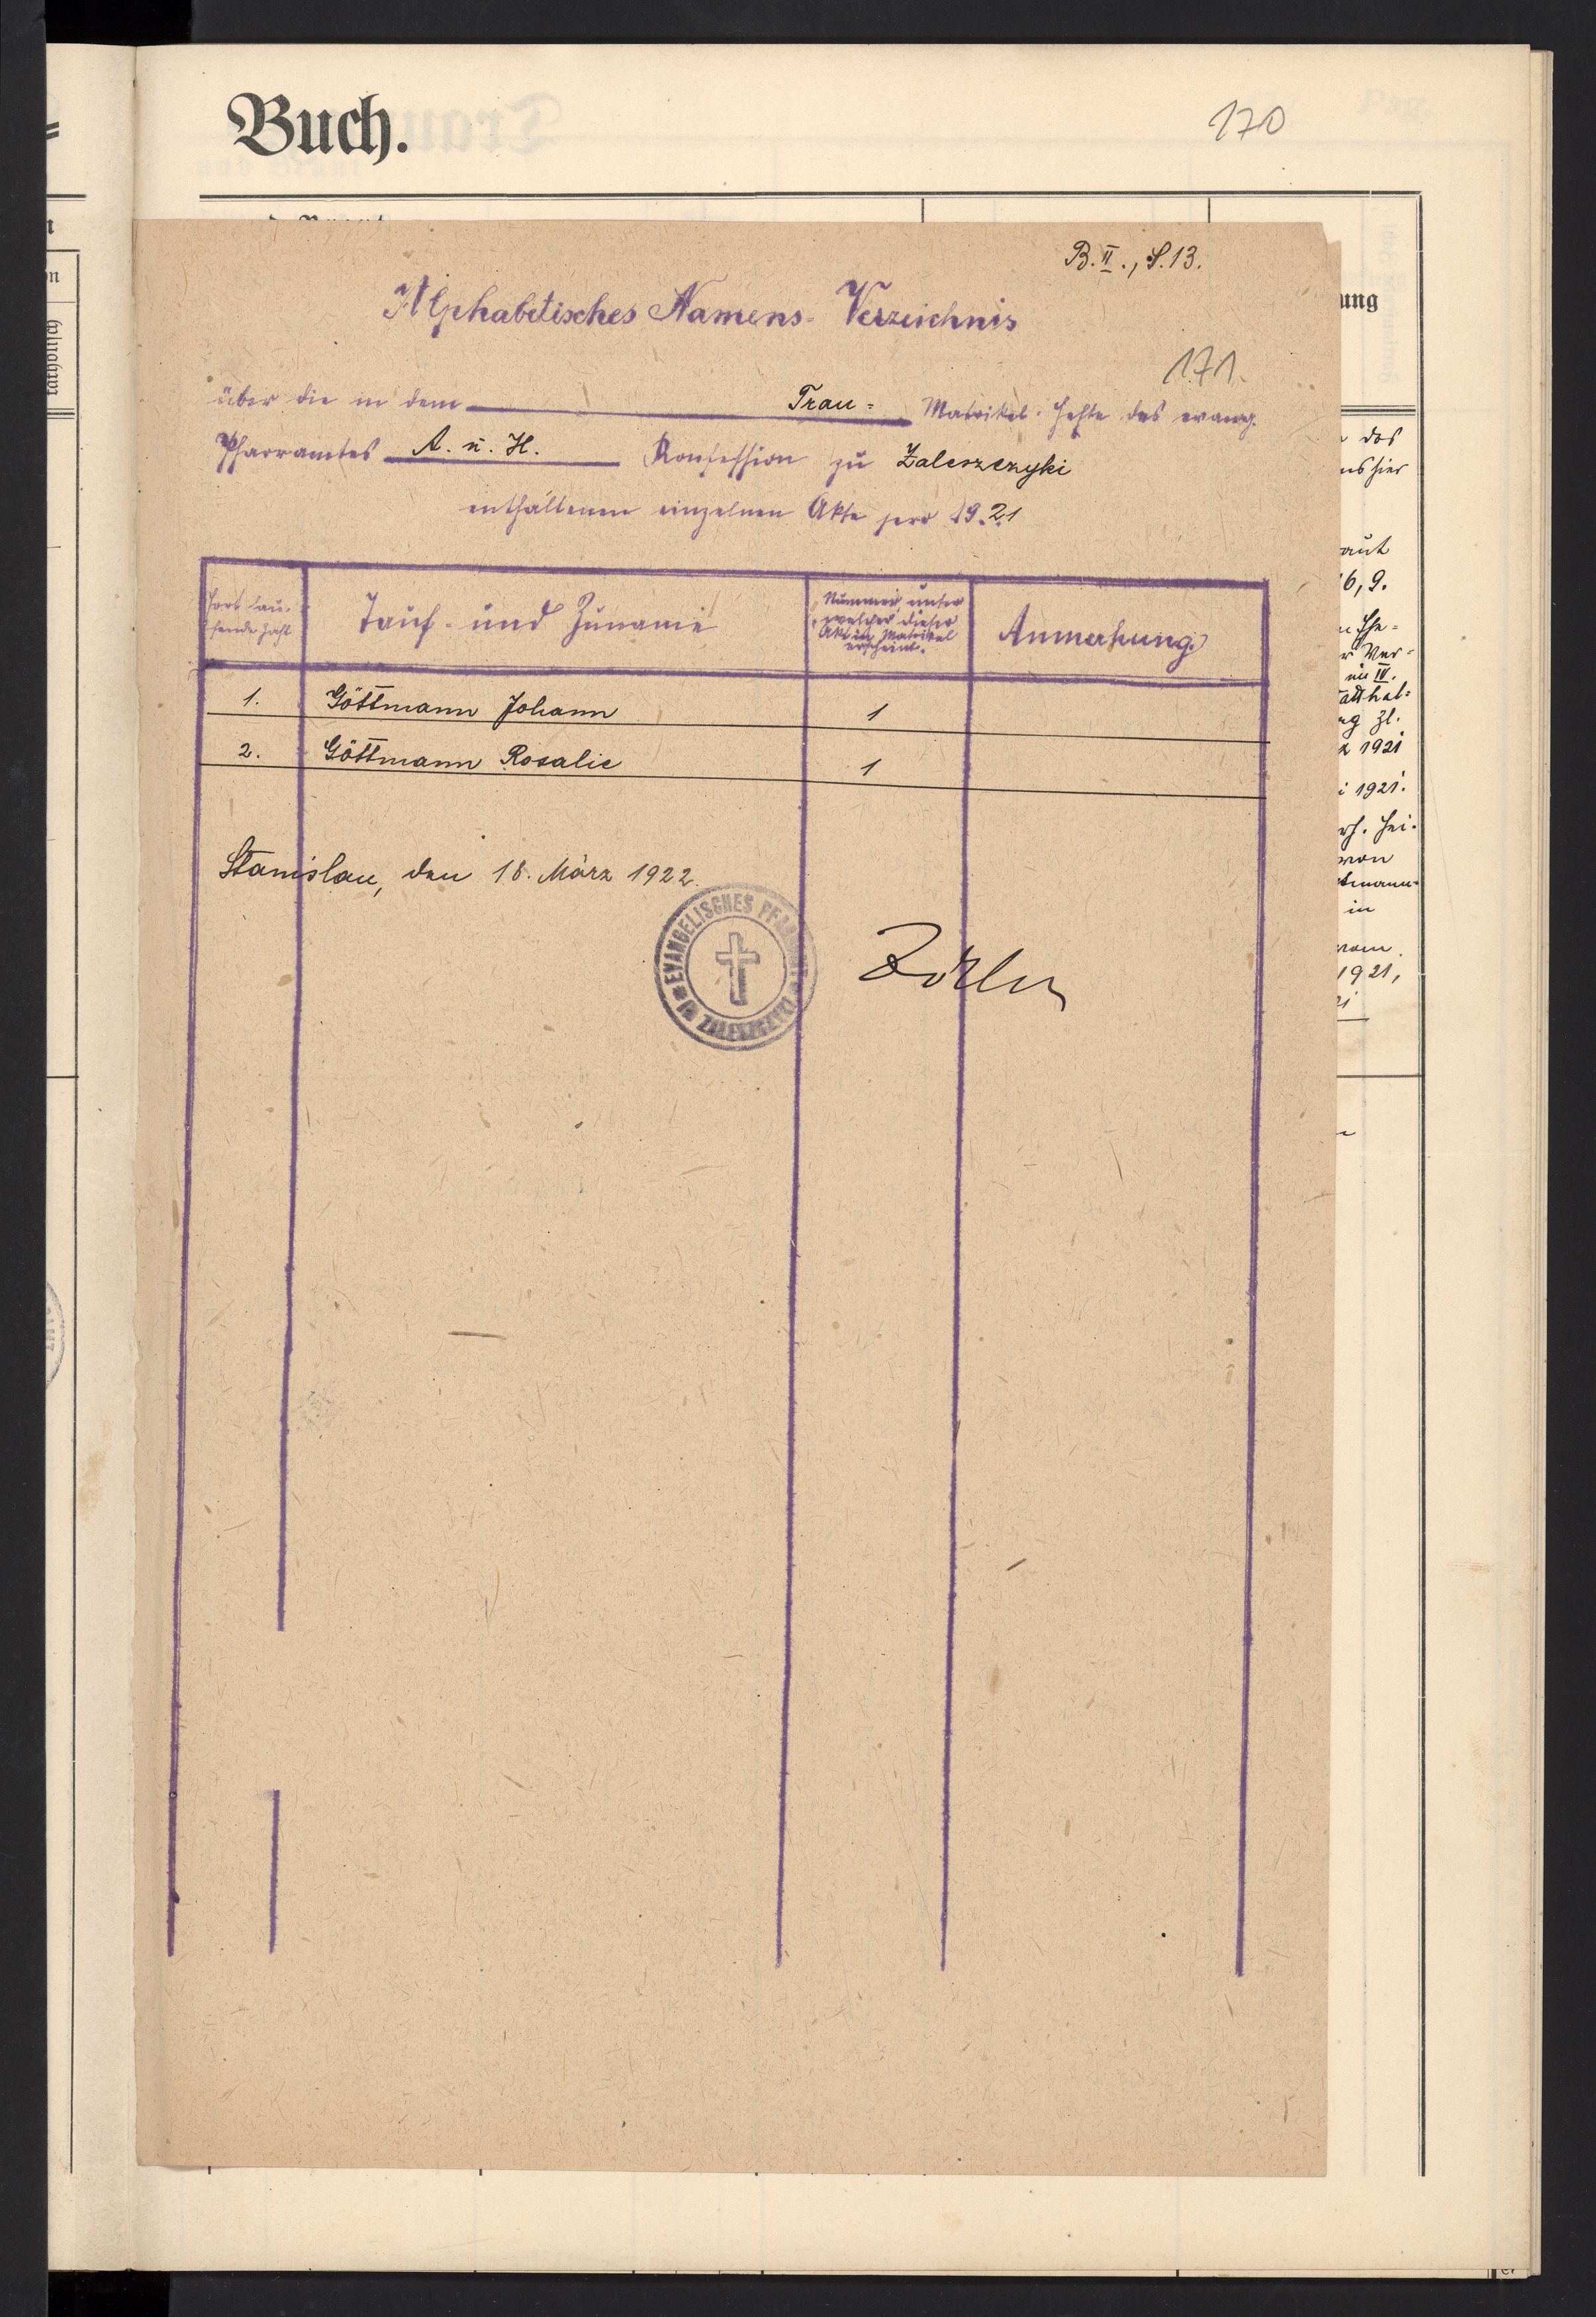 Buch.
170
B. II., S. 13.
Alphabetisches Namens-Verzeichnis
171.
über die in dem Trau= Matrikel-Hefte des evang.
Pfarramtes A. u. H. Konfession zu Zaleszczyki
enthaltenen einzelnen Akte pro 19.21
Fortlau-
fende Zahl
Tauf- und Zuname
Nummer, unter
welcher dieser
Akt in Matrikel
erscheint.
Anmerkung
1. Göttmann Johann 1
2. Göttmann Rosalie 1
Stanislau, den 18. März 1922.
EVANGELISCHES PFARRAMT
IN ZALESZCZYKI
ung
das
aut
16, 9.
nie IV.
zl.
1921
1921.
von
in
vom
1921,
katholisch